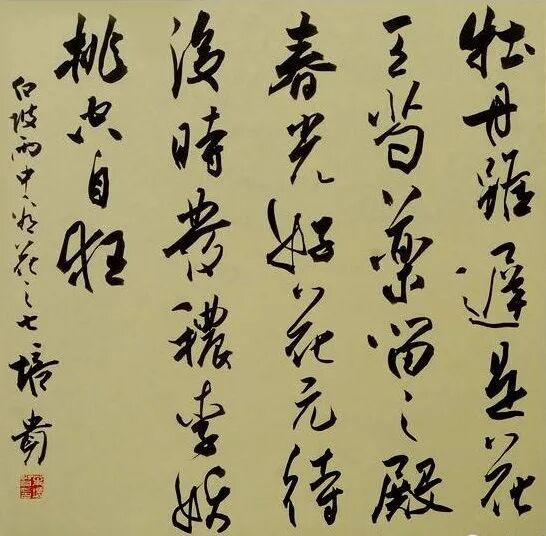 牡丹雖遲是花
王芍藥留之殿
春光好花元待
後時發穠李妖
桃空自狂
坡雨中花之七 培貴